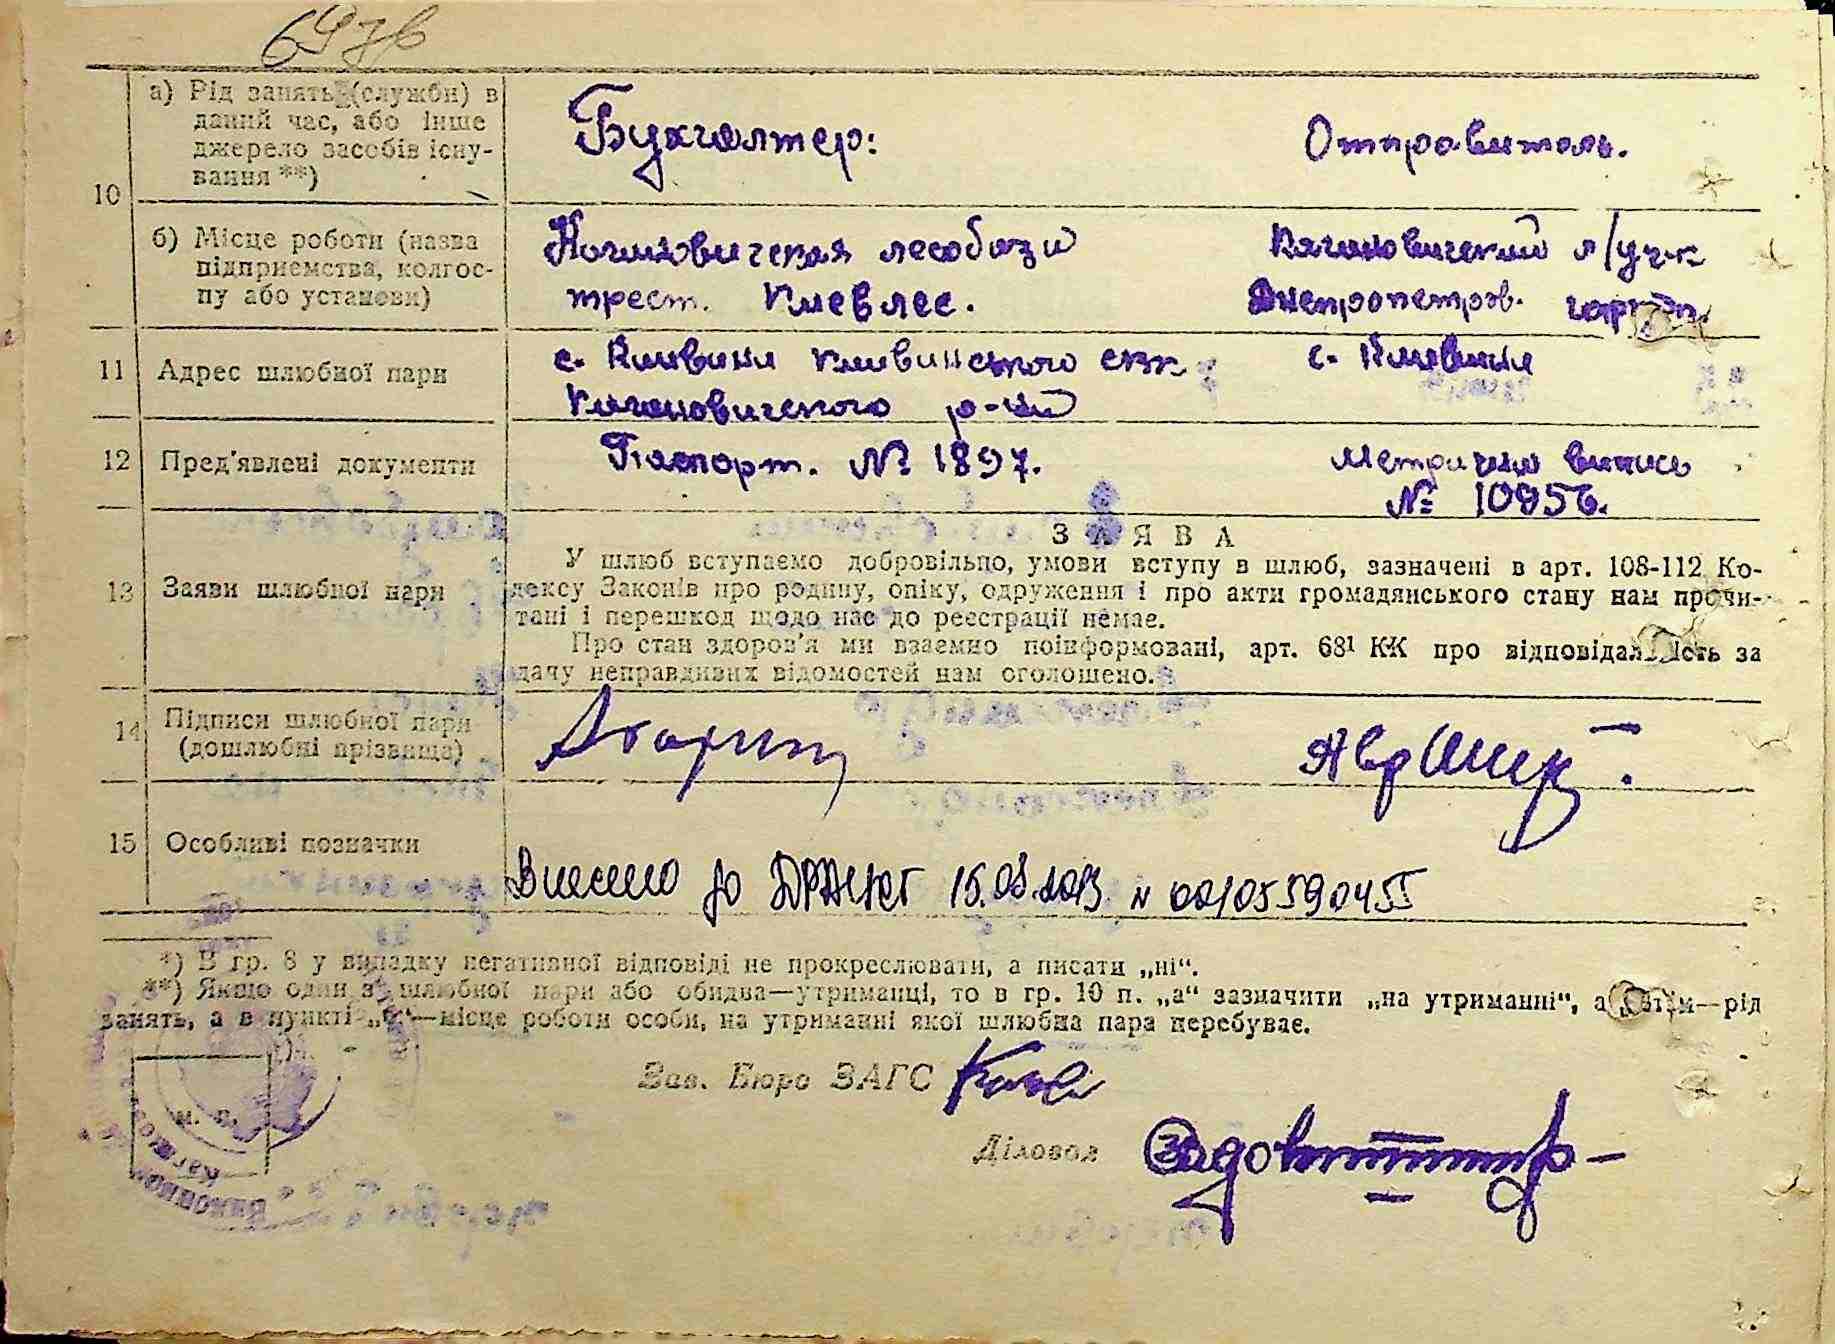 697в
10
а) Рід занять (служби) в
даний час, або інше
джерело засобів існу-
вання **)
Бухгалтер:
Отправитель.
б) Місце роботи (назва
підприємства, колгос-
пу або установи)
Кагановичская лесобаза
трест. Киевлес.
Кагановичский л/уч-к
Днепропетров.
11
Адрес шлюбної пари
с. Кливини Кливинского
Кагановичского р-на
с. Кливини
12
Пред'явлені документи
Паспорт. № 1897.
Метрична випись
№ 10956.
13
Заяви шлюбної пари
ЗАЯВА
У шлюб вступаємо добровільно, умови вступу в шлюб, зазначені в арт. 108-112 Ко-
дексу Законів про родину, опіку, одруження і про акти громадянського стану нам прочи-
тані і перешкод щодо нас до реєстрації немає.
Про стан здоров'я ми взаємно поінформовані, арт. 68¹ КК про відповідальність за
дачу неправдивих відомостей нам оголошено.
14
Підписи шлюбної пари
(дошлюбні прізвища)
15
Особливі позначки
Внесено до ДРАЦСГ 15.08.2013 N 00105590455
*) В гр. 8 у випадку негативної відповіді не прокреслювати, а писати „ні“.
**) Якщо один з шлюбної пари або обидва—утриманці, то в гр. 10 п. „а“ зазначити „на утриманні“, а потім—рід
занять, а в пункті „б“—місце роботи особи, на утриманні якої шлюбна пара перебуває.
м. п.
Зав. Бюро ЗАГС
Діловод